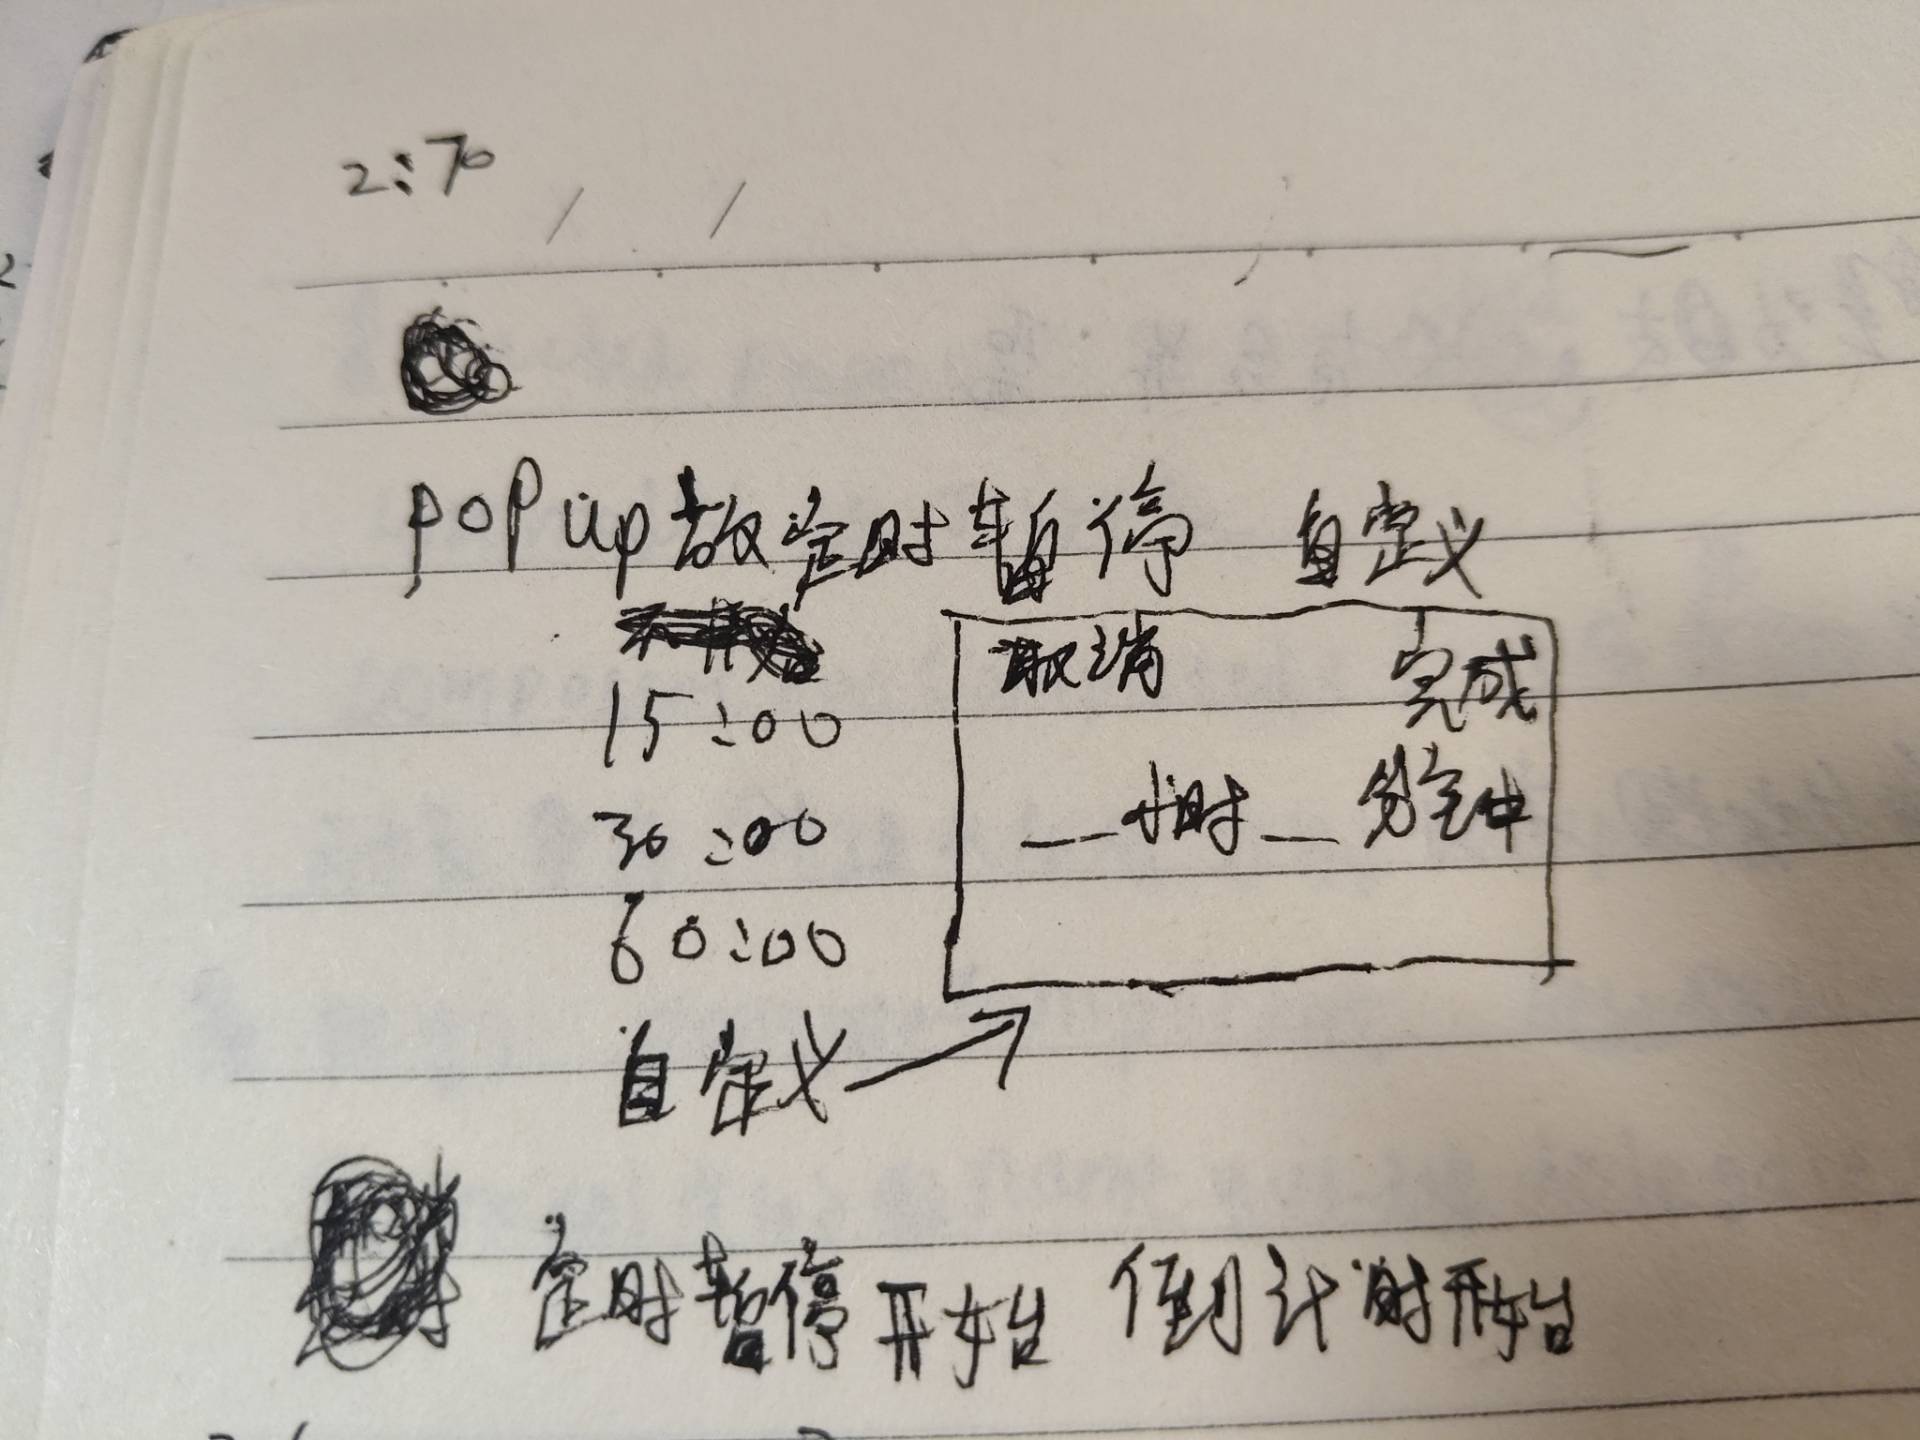 2:70
POP up 放定时暂停 自定义
15:00
30:00
60:00
自定义
取消 完成
__小时__分钟
定时暂停开始 倒计时开始